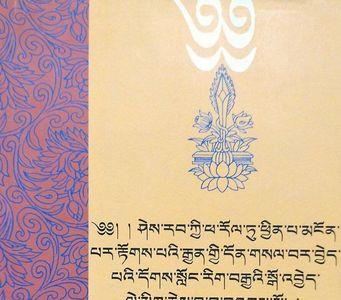 ༄༅། །ཤེས་རབ་ཀྱི་ཕ་རོལ་ཏུ་ཕྱིན་པ་མངོན་
པར་རྟོགས་པའི་རྒྱན་གྱི་དོན་གསལ་བར་བྱེད་
པའི་དོགས་སློང་རིག་བརྒྱའི་སྒོ་འབྱེད་